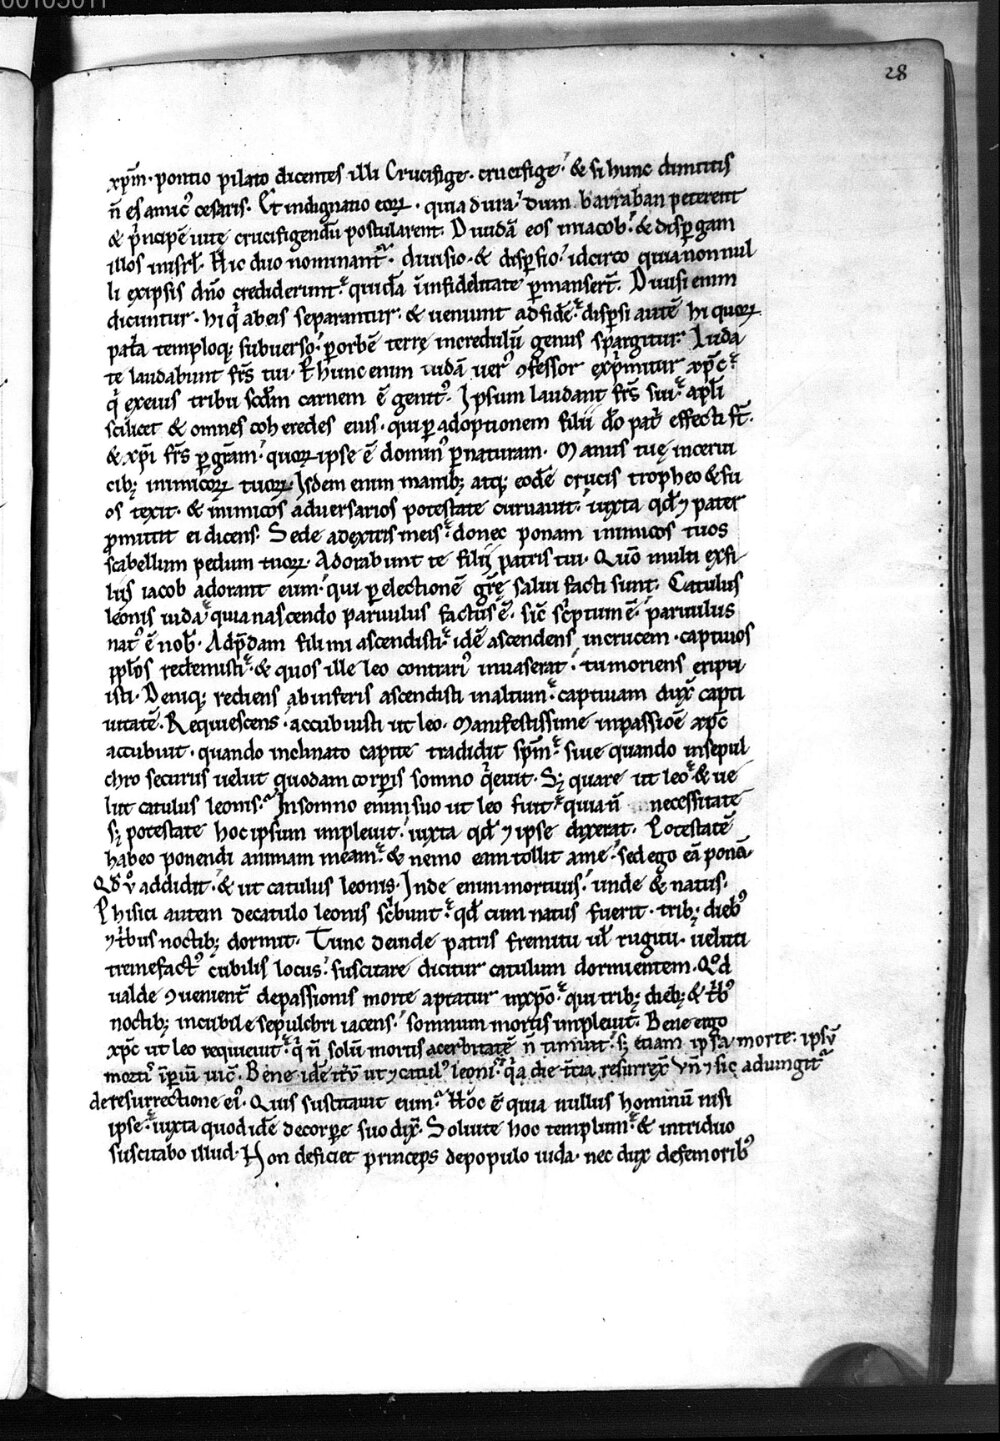 00105011
28
xp̄m · pontio pilato dicentes illi Crucifige · crucifige · & si hunc dimittis
n̄ es amic᷒ cesaris · Et indignatio eoꝝ · quia dura · dum barraban peterent
& p̍ncipē uitę crucifigendū postularent · Diuidā eos in iacob · & disꝑgam
illos in isrl̄ · Hic duo nominant᷑ · diuisio · & disꝑsio · idcirco quia non nul
li ex ipsis dn̄o crediderunt · quidā in infidelitate ꝑmansert̄ · Diuisi enim
dicuntur · hi q̍ ab eis separantur · & ueniunt ad fidē · disꝑsi autē hi quoꝝ
pat̍a temploq; subuerso · ꝑ orbē terrę incredulū genus spargitur · Iuda
te laudabunt fr̄s tui · Ꝑ hunc enim iudā uer᷒ ꝯfessor exp̍mitur xp̄c
q̍ ex eius tribu scd̄m carnem ē genit᷒ · Ipsum laudant fr̄s sui · apl̄i
scilicet & omnes coheredes eius · qui ꝑ adoptionem filii dō patri effecti st̄ ·
& xp̄i fr̄s ꝑ gr̄am · quoꝝ ipse ē domin᷒ ꝑ naturam · Manus tuę in cerui
cib; inimicoꝝ tuoꝝ · Isdem enim manib; atq; eodē crucis tropheo & su
os texit · & inimicos aduersarios potestate curuauit · iuxta qd̄ ⁊ pater
ꝓmittit ei dicens · Sede a dextris meis · donec ponam inimicos tuos
scabellum pedum tuoꝝ · Adorabunt te filii patris tui · Quō multi ex fi
liis iacob adorant eum · qui ꝑ electionē grę̄ salui facti sunt · Catulus
leonis iuda · quia nascendo paruulus factus ē · sic̄ sc̍ptum ē · paruulus
nat᷒ ē nob̄ · Ad p̄dam fili mi ascendisti · idē ascendens in crucem · captiuos
ppl̄os redemisti · & quos ille leo contrari᷒ inuaserat · tu moriens eripu
isti · Deniq; rediens ab inferis ascendisti in altum · captiuam dux̄ capti
uitatē · Requiescens · accubuisti ut leo · Manifestissime in passioē xp̄c
accubuit · quando inclinato capite tradidit sp̄m · siue quando in sepul
chro securus uelut quodam corꝑis somno q̍euit · S; quare ut leo · & ue
lut catulus leonis · In somno enim suo ut leo fuit · quia n̄ necessitate
s; potestate hoc ipsum impleuit · iuxta qd̄ ⁊ ipse dixerat · Potestatē
habeo ponendi animam meam · & nemo eam tollit a me · sed ego eā ponā ·
Qd̄ ů addidit · & ut catulus leonis · Inde enim mortuus · unde & natus ·
Phisici autem de catulo leonis sc̍bunt · qd̄ cum natus fuerit · trib; dieb᷒
⁊ t̍bus noctib; dormit · Tunc deinde patris fremitu ul̄ rugitu · ueluti
tremefact᷒ cubilis locus · suscitare dicitur catulum dormientem · Qd̄
ualde ꝯuenient̄ de passionis morte aptatur in xp̄o · qui trib; dieb; & t̍b᷒
noctib; in cubile sepulchri iacens · somnum mortis impleuit · Bene ergo
xp̄c ut leo requieuit · q̍ n̄ solū mortis acerbitatē n̄ timuit · s; etiam in ipsa morte · ipsū
mortis īꝑiū uic̄ · Bene idē it̄ū ut ⁊ catul᷒ leonis · q̍a die t̄cia resurrex̄ · vn̄ ⁊ sic adiungit᷑
de resurrectione ei᷒ · Quis suscitauit eum · Hoc ē quia nullus hominū nisi
ipse · iuxta quod idē de corꝑe suo dix̄ · Soluite hoc templum · & in triduo
suscitabo illud · Non deficiet princeps de populo iuda · nec dux de femorib᷒